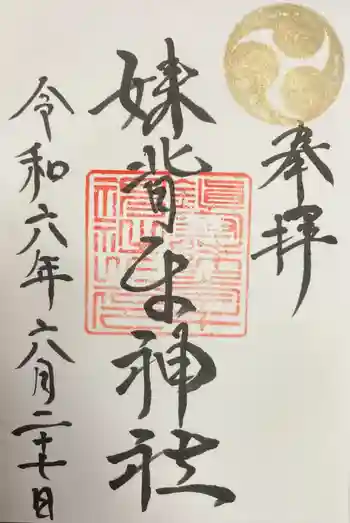 奉拝
妹背牛神社
令和六年六月二十七日